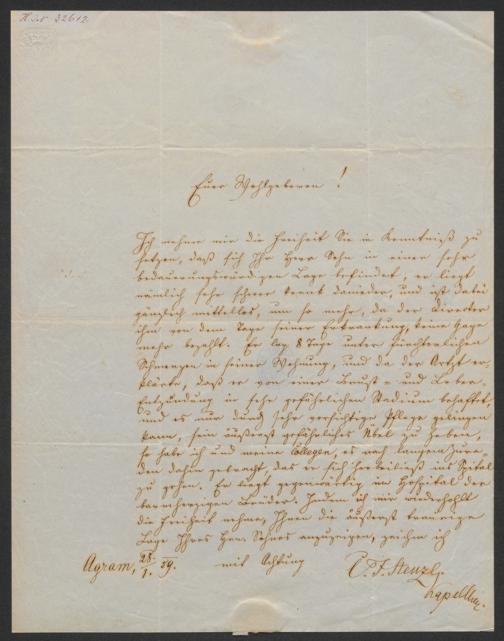 Euer Wohlgeboren!
Ich nehme mir die Freiheit Sie in Kenntniß zu
setzen, daß sich Ihr Herr Sohn in einer sehr
bedauerungswürdigen Lage befindet, er liegt
nämlich sehr schwer krank danieder, und ist dabei
gänzlich mittellos, um so mehr, da der Direktor
ihm von dem Tage seiner Erkrankung, keine Gage
mehr bezahlt. Er lag 8 Tage unter fürchterlichen
Schmerzen in seiner Wohnung, und da der Artzt er-
klärte, daß er von einer Brust- und Leber-
Entzündung in sehr gefährlichen Stadium behaftet
und es nur durch sehr Pflege gelingen
kann, sein äußerst gefährliches Übel zu heben,
so habe ich und meine Collegen, es nach langem Zure-
den dahin gebracht, das er sich herbeiließ ins Spital
zu gehen. Er liegt gegenwärtig im Hospital der
barmherzigen Brüder. Indem ich mir wiederhohlt
die Freiheit nehme, Ihnen die äußerst traurige
Lage Ihres Herrn Sohnes anzuzeigen, zeichne ich
Agram, 28/1. 59. mit Achtung C. F. Stenzl,
Kapellm.